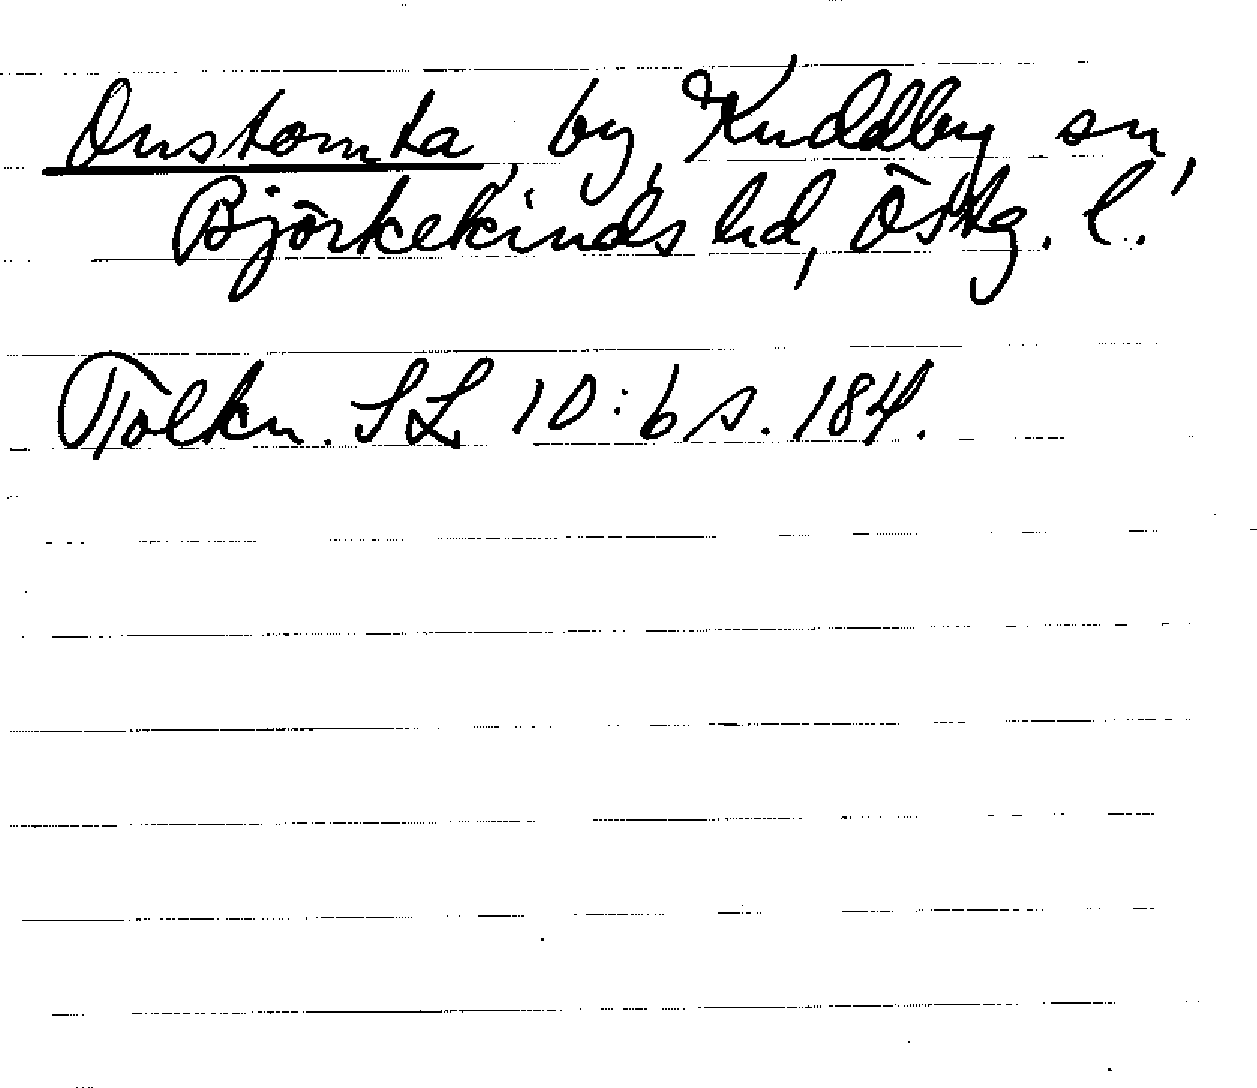 Onstomta, by, Kuddby sn,
Björkekinds hd, Östg. l.
Tolkn. SL 10:6 s. 184.